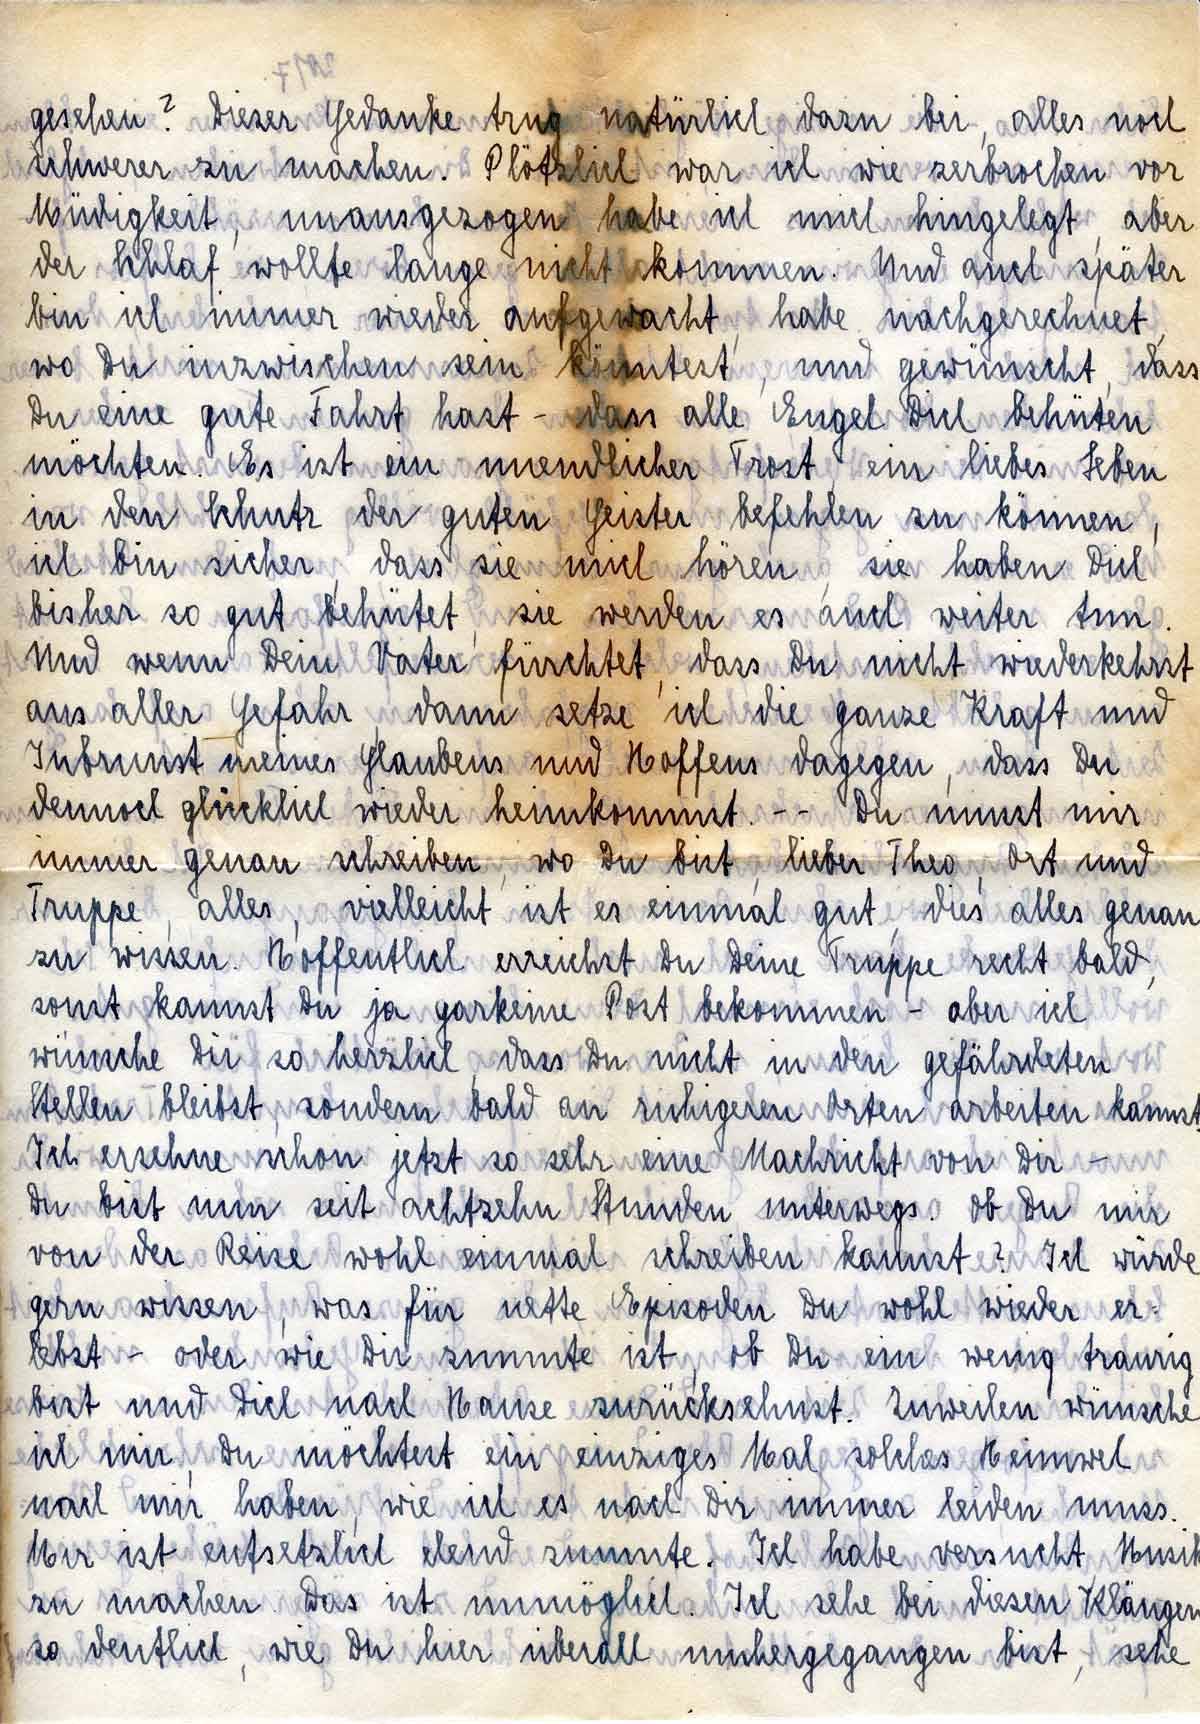 gesehen? Dieser Gedanke trug natürlich dazu bei, alles noch
schwerer zu machen. Plötzlich war ich wie zerbrochen vor
Müdigkeit, unausgezogen habe ich mich hingelegt, aber
der Schlaf wollte lange nicht kommen. Und auch später
bin ich immer wieder aufgewacht, habe nachgerechnet,
wo Du inzwischen sein könntest, und gewünscht, dass
Du eine gute Fahrt hast - dass alle Engel Dich behüten
möchten. Es ist ein unendlicher Trost, ein liebes Leben
in den Schutz der guten Geister befehlen zu können,
ich bin sicher, dass sie mich hören, sie haben Dich
bisher so gut behütet, sie werden es auch weiter tun.
Und wenn Dein Vater fürchtet, dass Du nicht wiederkehrst
aus aller Gefahr, dann setze ich die ganze Kraft und
Inbrunst meines Glaubens und Hoffens dagegen, dass Du
dennoch glücklich wieder heimkommst. -- Du musst mir
immer genau schreiben, wo Du bist, lieber Theo, Ort und
Truppe, alles, vielleicht ist es einmal gut, dies alles genau
zu wissen. Hoffentlich erreichst Du Deine Truppe recht bald,
sonst kannst Du ja garkeine Post bekommen - aber ich
wünsche Dir so herzlich, dass Du nicht in den gefährdeten
Stellen bleibst, sondern bald an ruhigeren Orten arbeiten kannst.
Ich ersehne schon jetzt so sehr eine Nachricht von Dir -
Du bist nun seit achtzehn Stunden unterwegs. Ob Du mir
von der Reise wohl einmal schreiben kannst? Ich würde
gern wissen, was für nette Episoden Du wohl wieder er-
lebst - oder wie Dir zumute ist, ob Du ein wenig traurig
bist und Dich nach Hause zurücksehnst. Zuweilen wünsche
ich mir, Du möchtest ein einziges Mal solches Heimweh
nach mir haben, wie ich es nach Dir immer leiden muss.
Mir ist entsetzlich elend zumute. Ich habe versucht Musik
zu machen. Das ist unmöglich. Ich sehe bei diesen Klängen
so deutlich, wie Du hier überall umhergegangen bist, sehe